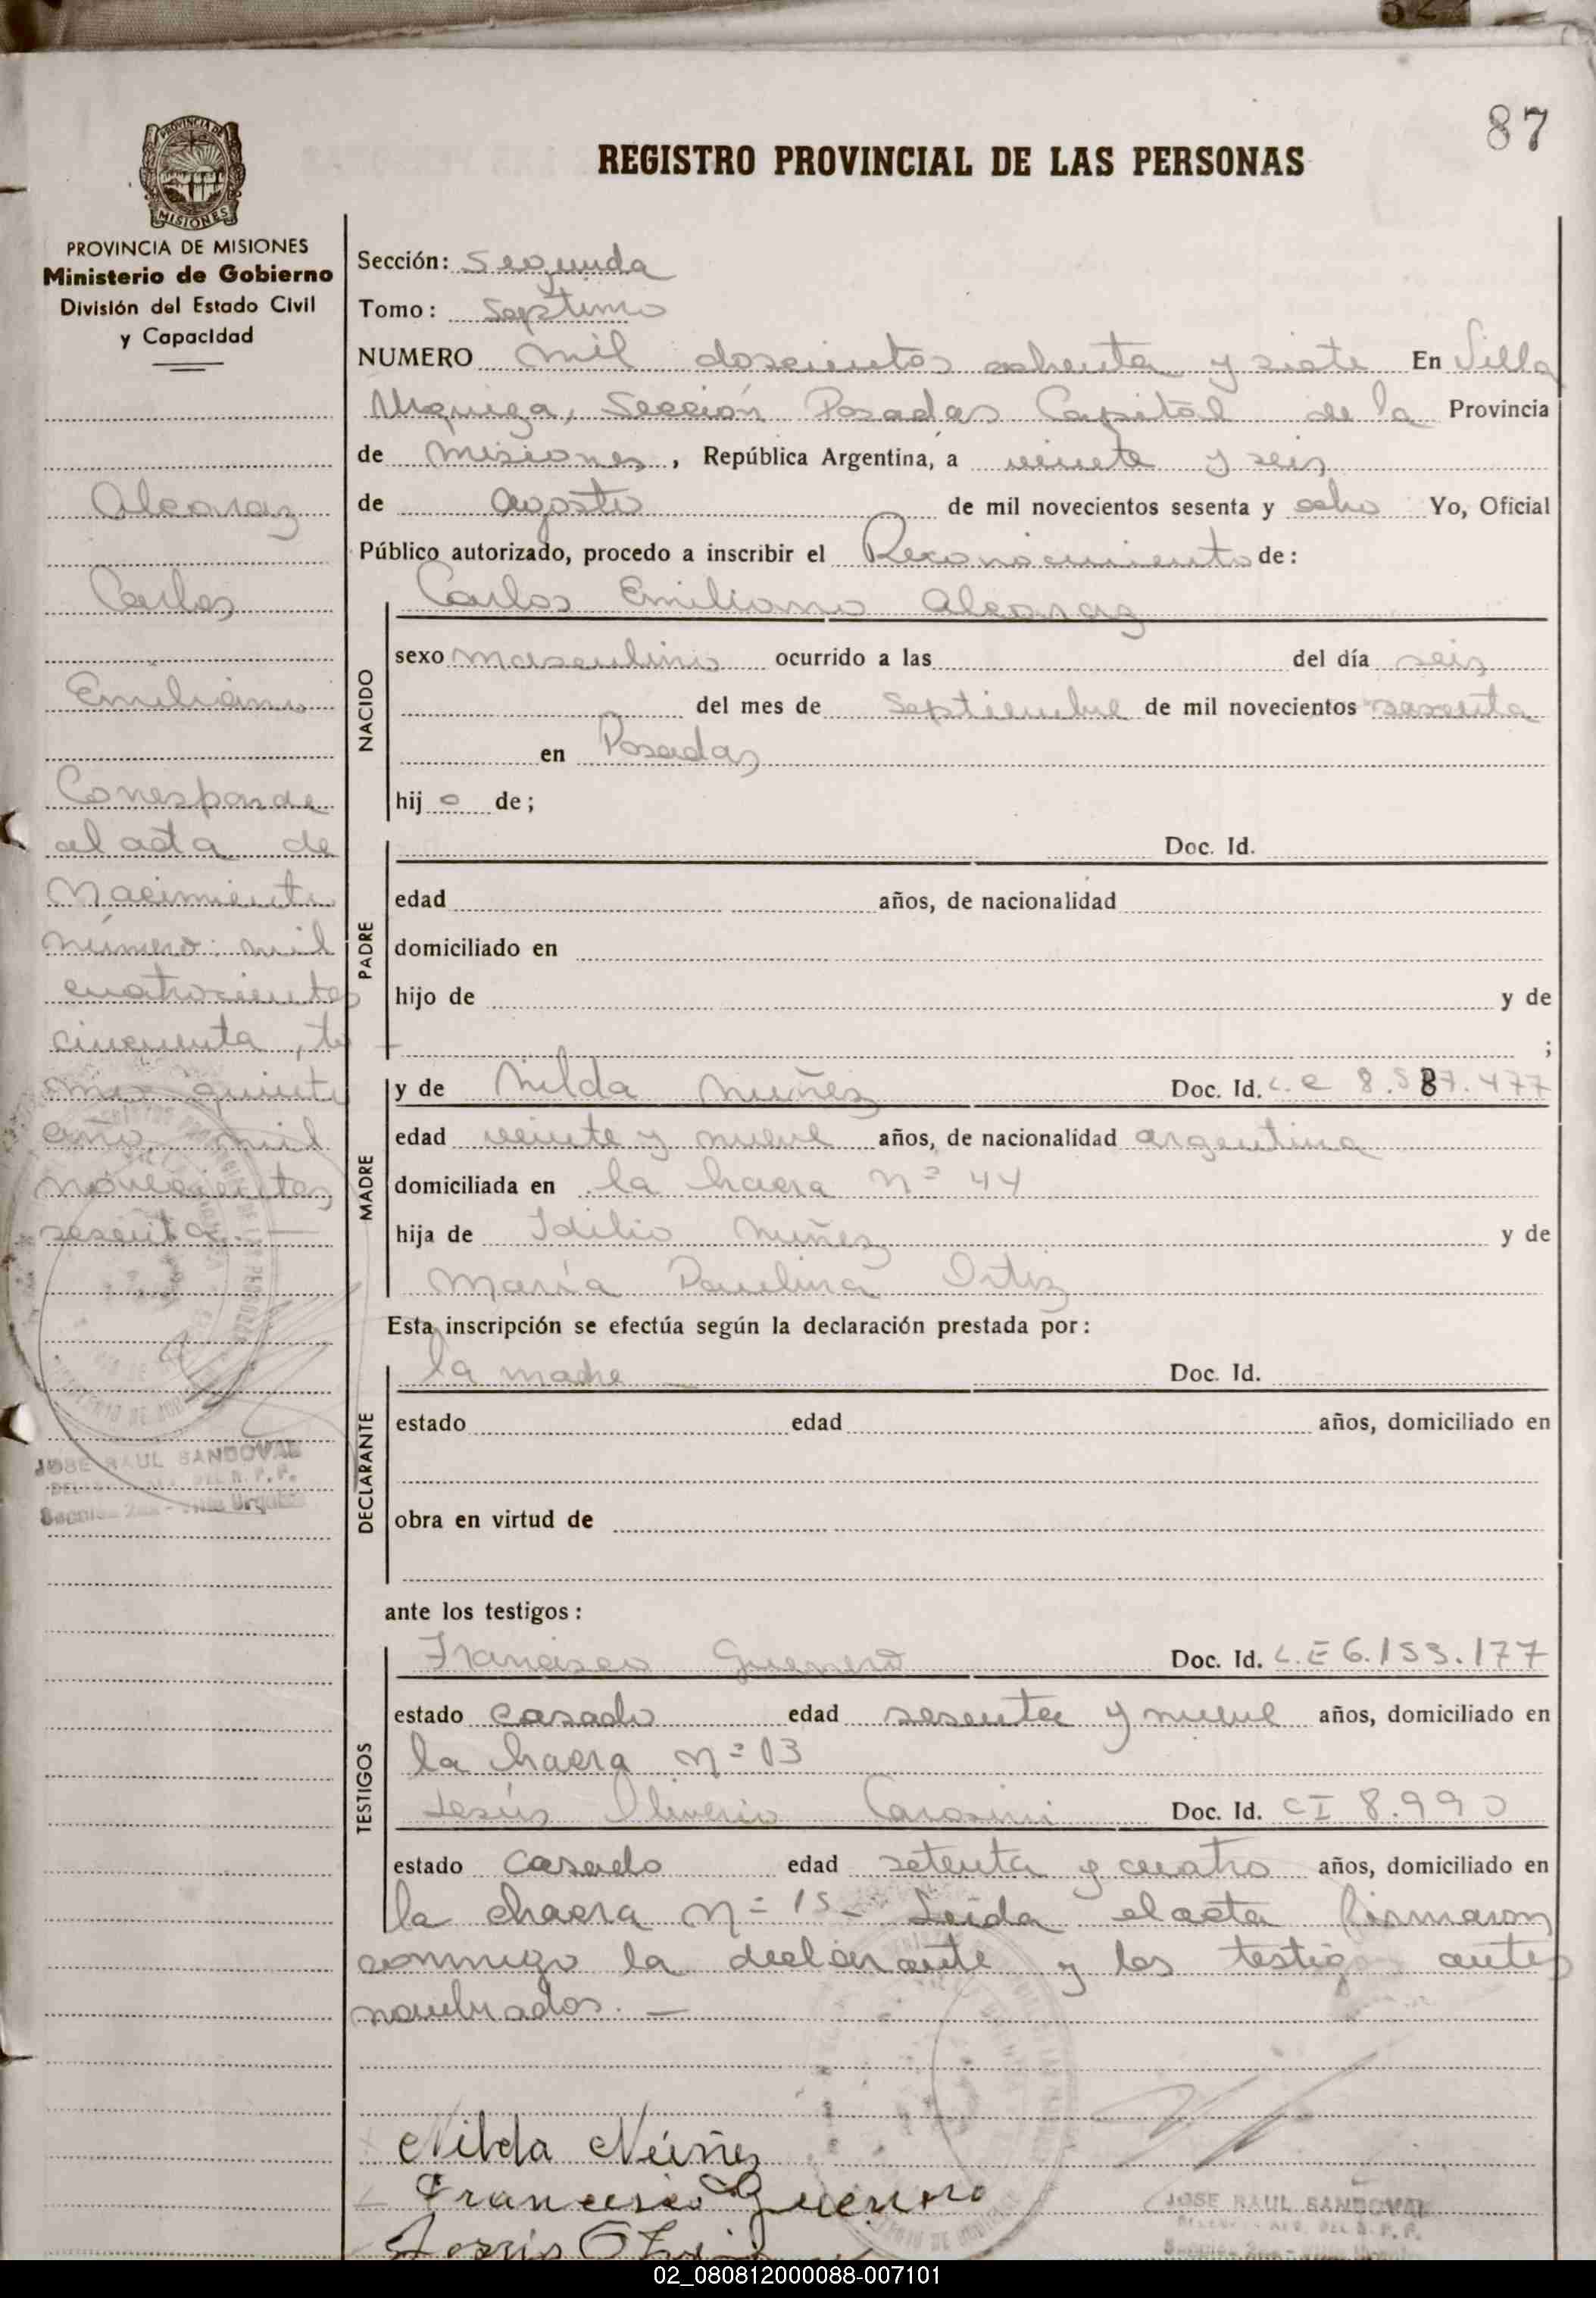 87
REGISTRO PROVINCIAL DE LAS PERSONAS
PROVINCIA DE
MISIONES
PROVINCIA DE MISIONES
Ministerio de Gobierno
División del Estado Civil
y Capacidad
Alcaraz
Carlos
Emiliano
Corresponde
al acta de
Nacimiento
número: mil
cuatrocientos
cincuenta, to
mo quinto
año mil
novecientos
sesenta. —
JOSE RAUL SANDOVAL
DEL R. P. P.
Sección 2da - Villa Urquiza
Sección: Segunda
Tomo: Septimo
NUMERO mil doscientos ochenta y siete En Villa
Urquiza, Sección Posadas Capital de la Provincia
de Misiones, República Argentina, a veinte y seis
de agosto de mil novecientos sesenta y ocho Yo, Oficial
Público autorizado, procedo a inscribir el Reconocimiento de:
NACIDO
Carlos Emiliano Alcaraz
sexo masculino ocurrido a las del día seis
del mes de Septiembre de mil novecientos sesenta
en Posadas
hijo de;
PADRE
Doc. Id.
edad años, de nacionalidad
domiciliado en
hijo de y de
;
MADRE
y de Nilda Nuñez Doc. Id. L.C 8.587.477
edad veinte y nueve años, de nacionalidad argentina
domiciliada en la hacra nº 44
hija de Idilio Nuñez y de
María Paulina Ortiz
Esta inscripción se efectúa según la declaración prestada por:
DECLARANTE
la madre — Doc. Id.
estado edad años, domiciliado en
obra en virtud de
ante los testigos:
TESTIGOS
Francisco Guerrero Doc. Id. L.E 6.153.177
estado casado edad sesenta y nueve años, domiciliado en
la hacra nº 13
Jesús Oliverio Doc. Id. CI 8.990
estado casado edad setenta y cuatro años, domiciliado en
la chacra nº 15 - Leída el acta firmaron
conmigo la declarante y los testigos antes
nombrados. —
Nilda Núñez
Francisco Guerrero
JOSE RAUL SANDOVAL
DEL R. P. P.
02_080812000088-007101